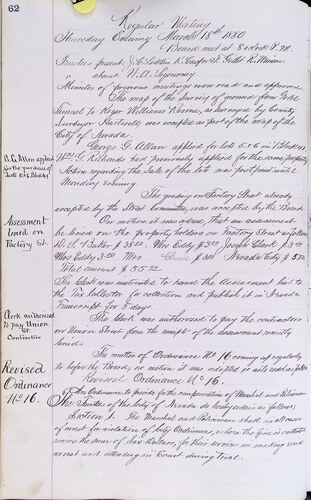 62
Regular Meeting
Thursday Evening March 18th 1880
Board met at 8 oclock P.M.
Trustees present, J.C. K. Casper T. Gill R.
" absent W.A.
Minutes of previous meetings were read and approved
The map of the survey of ground from
Tunnel to Roger Williams Ravine, as surveyed by County
Surveyor Hartwell was accepted as part of the map of the
City of Nevada.
A.G. Allan applied
for the purchase of
Lots 5 & 6 Block 41
George G. Allan applied for Lots 5 & 6 in Block 41,
Wm G. Richards had previously applied for the same property
Action regarding the Sale of the lots was postponed until
Monday evening
The grading on Factory Street already
accepted by the Street Committee, was accepted by the Board.
Assessment
levied on
Factory St.
On motion it was ordered, that an assessment
be levied on the property holders on Factory Street as follows
D.S. Baker $38.00. Wm Eddy $3.00 Joseph Clark $3.00
Mrs Eddy 3.00 Mrs $3.00 Nevada City $5.00
Total amount $55.00
The Clerk was instructed to hand the Assessment list to
the Tax Collector for collection and publish it in Nevada
Transcript for 5 days
Clerk authorized
to pay Union
St.
Contractors
The Clerk was authorized to pay the contractors
on Union Street from the receipts of the assessment recently
levied.
The matter of Ordinance No 16 coming up regularly
before the Board, on motion it was adopted to wit: read as follows
Revised
Ordinance
No 16.
Revised Ordinance No 16.
An Ordinance to provide for the compensation of Marshal and Policeman
The Trustees of the City of Nevada do ordain as follows;
Section 1. The Marshal and Policeman shall in all cases
of arrest for violation of City Ordinances, where the fine is collected
receive the sum of Six Dollars, for their services in making said
arrest and attending in Court during trial.